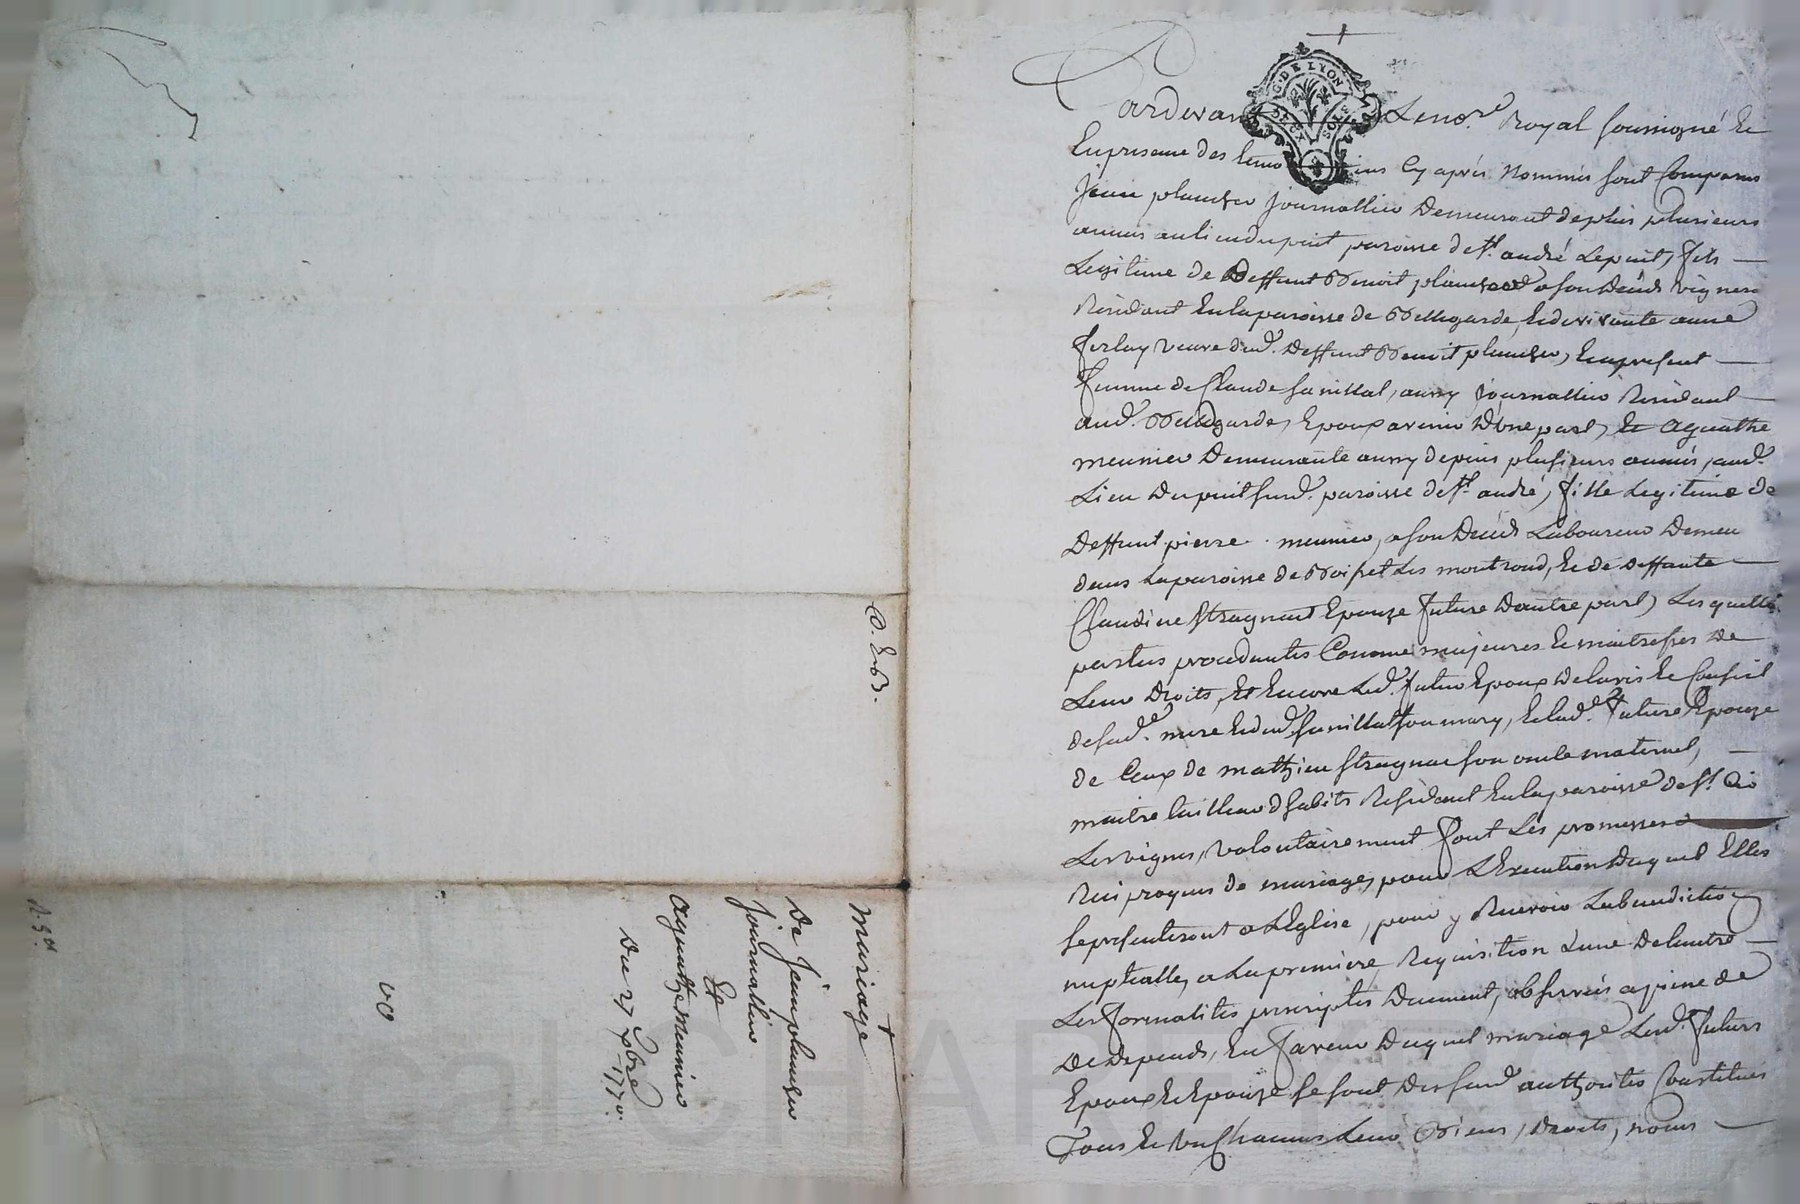 G. DE LYON
Pardevant Le no.re Royal soussigné Et
En presence des temoins Cy après Nommés sont Comparus
Jean plancher journallier Demeurant depuis plusieurs
années au lieu du puit paroisse de St. andré Lepuit, fils
Legitime de Deffunt Benoit plancher a son Décés vigneron
Résidant En la paroisse de Bellegarde, Et de vivante anne
ferlay veuve dud. Deffunt Benoit plancher, Et a present
femme de Claude sanillat, aussy journallier Residant
aud. Bellegarde, Epoux avenir D'une part, Et agnathe
meunier Demeurante aussy depuis plusieurs années, aud.
Lieu Du puit susd. paroisse de St. andré, fille Legitime de
Deffunt pierre meunier, a son Décés Laboureur Demeu
dans La paroisse de Boisset Les montrond, Et de deffante
Claudine stragnart Epouze future D'autre part, Lesquelles
parties procedantes Comme majeures Et maitresses De
Leur Droits, Et Encore Led. futur Epoux De lavis Et Conseil
de sad.e mere Et dud. sanillat son mary, Et lad.e future Epouze
de Ceux de mathieu stragnat son oncle maternel,
maitre tailleur d'habits Residant En la paroisse de St. Ci
Les vignes, volontairement font Les promesses
Reciproques de mariage, pour L'Execution Duquel Elles
se presenteront a L'Eglise, pour y Recevoir La benediction
nuptialle, a La premiere Requisition L'une De lautre
Les formalités prescriptes Duement, observées a peine de
De depends, En faveur Duquel mariage Lesd. futurs
Epoux Et Epouze se sont Des susd. authorités Constitués
Tous Et Un Chacuns Leur Biens, Droits, noms
mariage
De Jean plancher
journallier
Et
agnathe Meunier
Du 27 xbre 1770.